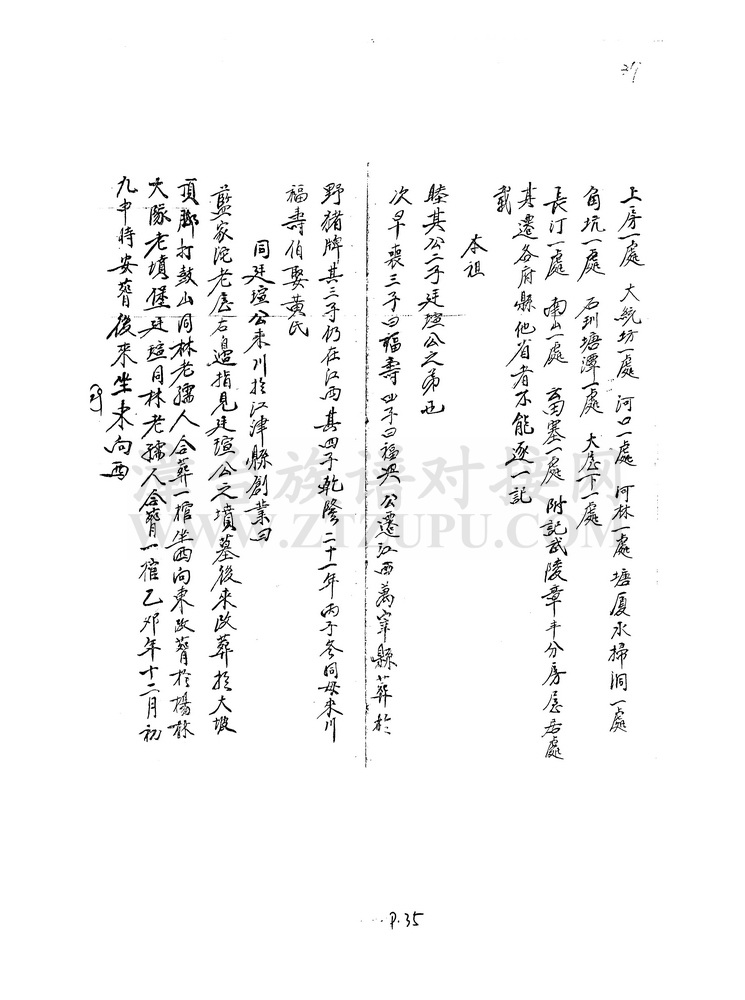 上房一處 大統坊一處 河口一處 河林一處 塘厦水掃洞一處
角坑一處 石圳塘潭一處 大屋下一處
長汀一處 南山一處 畲寨一處 附記武陵章平分房居處
其遷各府縣他省者不能逐一記
載
本祖
睦其公二子廷瑄公之弟也
次早喪三子曰福壽四子曰福 公遷江西萬寧縣葬於
野猪牌其三子仍在江西其四子乾隆二十一年丙子冬同母來川
福壽伯娶黄氏
同廷瑄公來川於江津縣創業曰
藍家沱老屋右邊指見廷瑄公之墳墓後來改葬於大坡
頂腳打鼓山同林老孺人合葬一棺坐西向東改葬於楊林
大隊老墳堡廷瑄同林老孺人合葬一棺乙卯年十二月初
九申時安葬後來坐東向西
漳台族谱对接网
WWW.ZTZUPU.COM
P.35